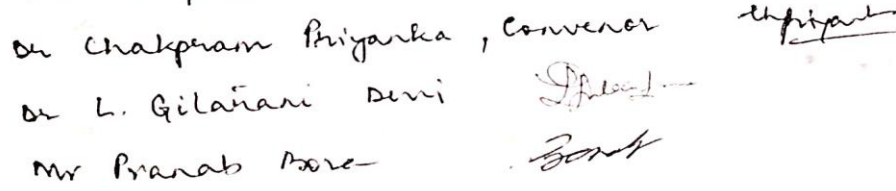 Dr Chakpram Priyanka, Convenor Chpriyank
Dr L. Gilañani Devi
Mr Pranab Bora